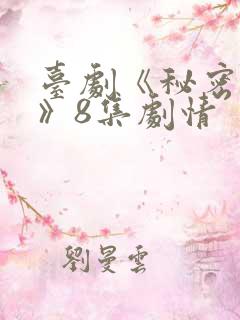 臺劇《秘密
》8集劇情
劉曼雲